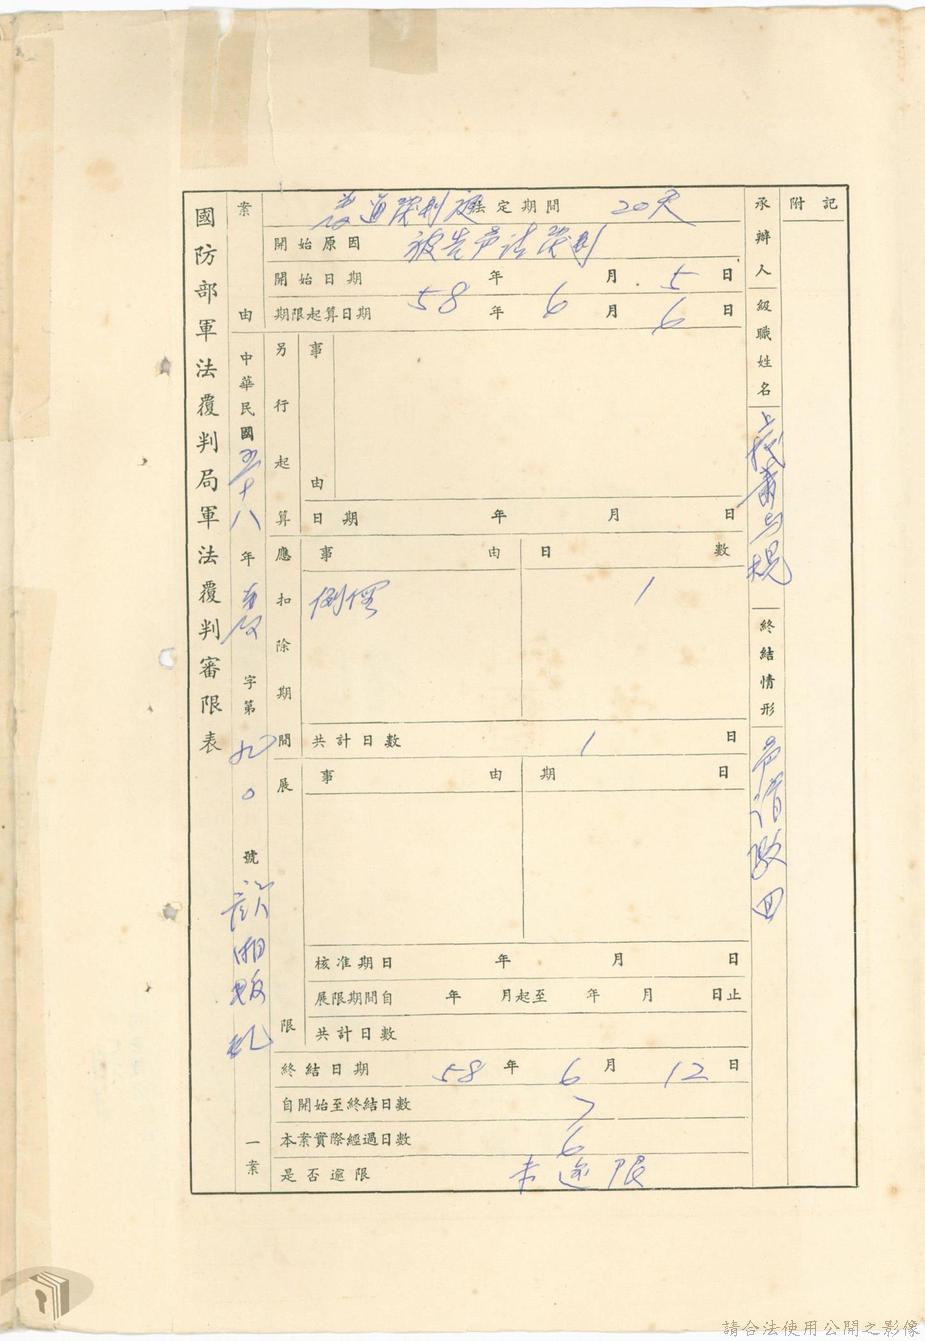 國防部軍法覆判局軍法覆判審限表
案由
普通覆判庭法定期間 20天
開始原因 被告声請覆判
開始日期 58年6月5日
期限起算日期 58年6月6日
中華民國五十八年
字第九〇號
叛亂
一案
另行起算
事由
日期 年 月 日
應扣除期間
事由 日數
例假 1
共計日數 1日
展限
事由 期日
核准期日 年 月 日
展限期間自 年 月起至 年 月 日止
共計日數
終結日期 58年6月12日
自開始至終結日數 7
本案實際經過日數 6
是否逾限 未逾限
承辦人級職姓名
上校
終結情形 声請駁回
附記
請合法使用公開之影像